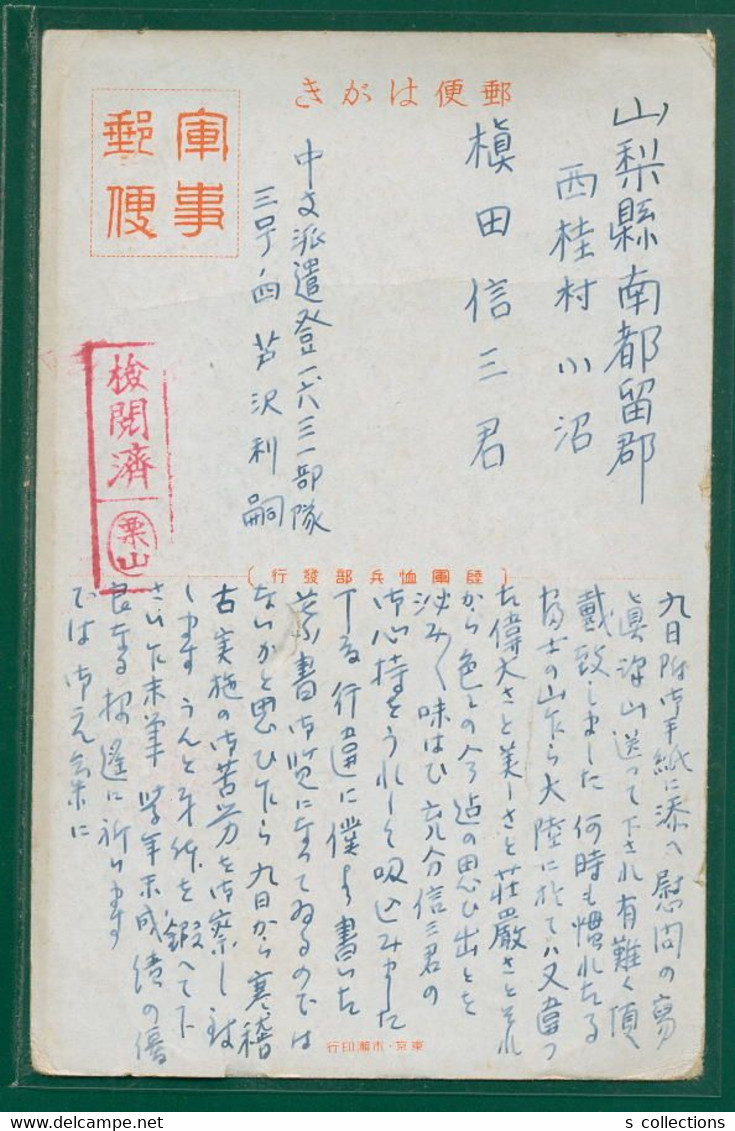 郵便はがき
軍事
郵便
山梨縣南都留郡
西桂村小沼
槙田信三君
中支派遣登一六三一部隊
三号ノ四 芦沢利嗣
検閲済
栗山
(陸軍恤兵部發行)
九日附御手紙に添へ慰問の寫
眞沢山送って下され有難く頂
戴致しました 何時も慣れたる
富士の山乍ら大陸に於ては又違つ
た偉大さと美しさと荘嚴さとそれ
から色々の今迠の思ひ出とを
沁み〲味はひ充分信三君の
御心持をうれしく吸込みました
丁度行違に僕より書いた
葉書御覧になってゐるのでは
ないかと思ひ乍ら 九日から寒稽
古実施の御苦労を御察し致
します うんと身体を鍛へて下
さい 乍末筆 学年末成績の優
良なる様遥に祈ります
では 御元気に
東京・市瀬印行
s collections